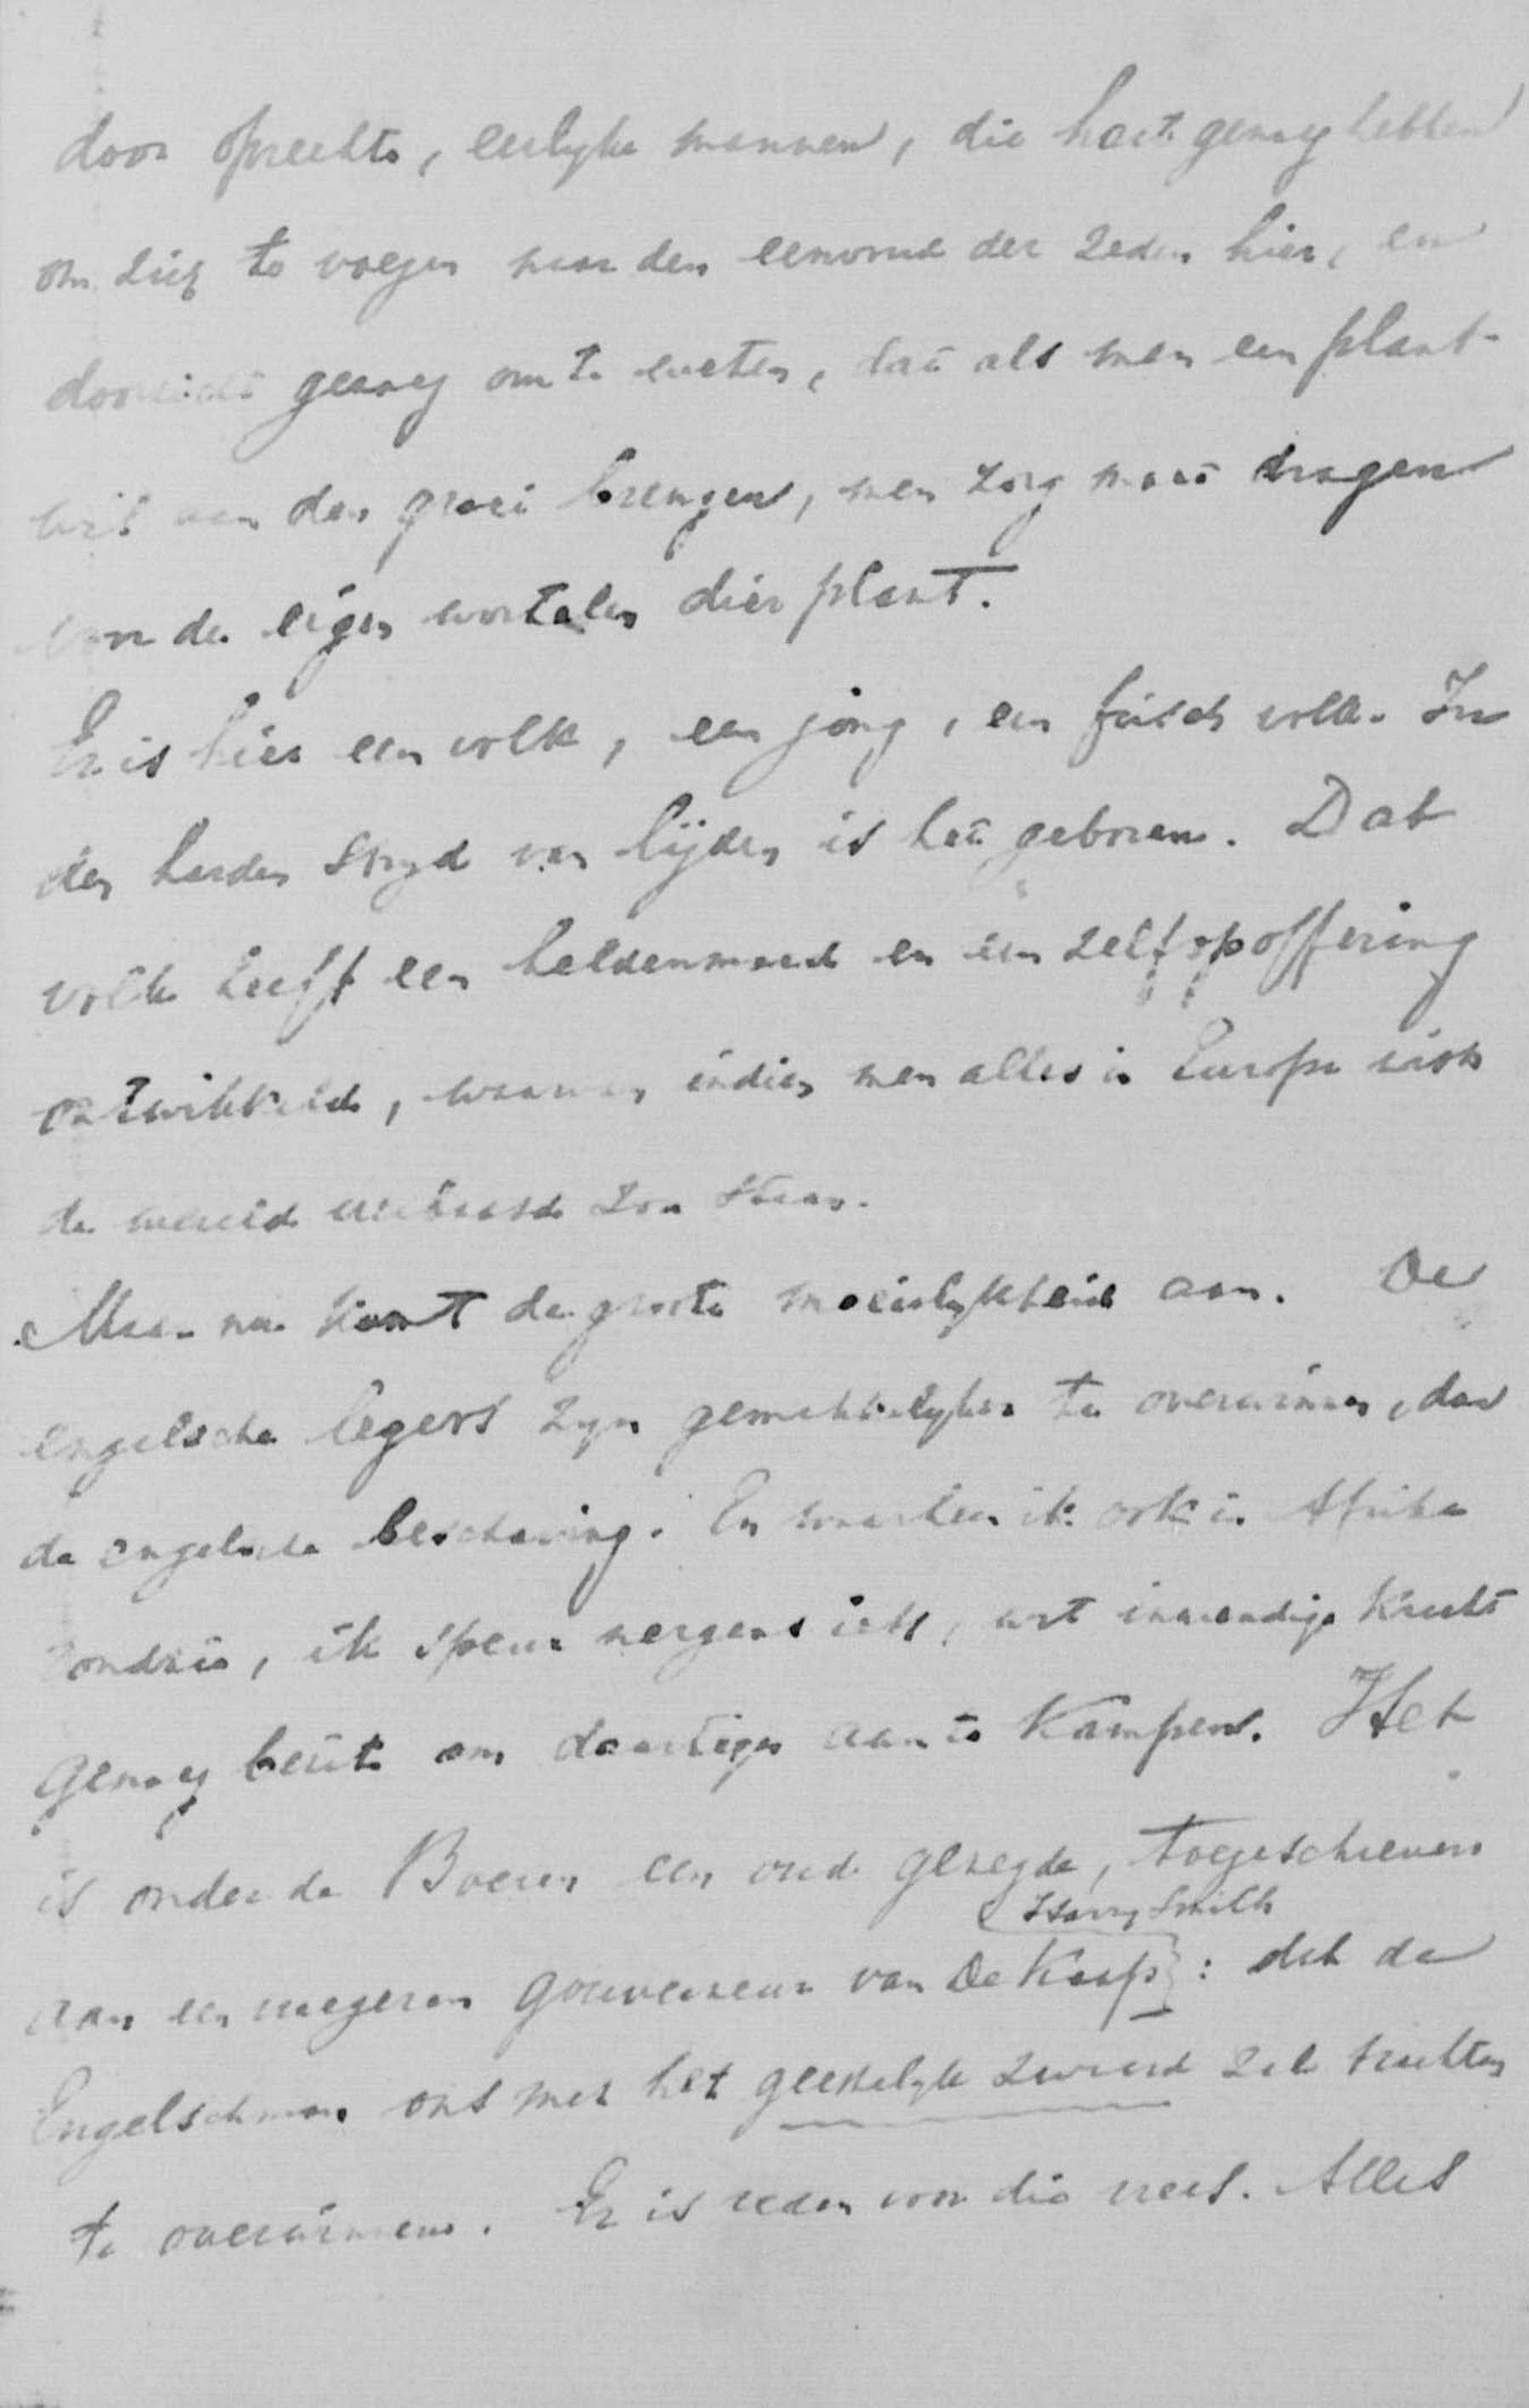 door oprechte, eerlyke mannen, die hart genoeg hebben
om zich te voegen naar den eenvoud der zeden hier, en
doorzicht genoeg om te weten, dat als men een plant
wil aan den groei brengen, men zorg moet dragen
voor de eigen wortelen dier plant.
Er is hier een volk, een jong, een frisch volk. In
den harden stryd van lijden is het geboren. Dat
volk heeft een heldenmoed en een zelfopoffering
ontwikkeld, waarvan indien men alles in Europa wist
de wereld verbaasd zou staan.
Maar nu komt de groote moeielykheid aan. De
engelsche legers zyn gemakkelyker te overwinnen, dan
de engelsche beschaving. En waarheen ik ook in Afrika
rondzie, ik speur nergens iets, wat inwendige kracht
genoeg bezit om daartegen aan te kampen. Het
is onder de Boeren een oud gezegde, toegeschreven
Harry Smith
aan een vroegeren gouverneur van De Kaap : dat de
Engelschman ons met het geestelyk zwaard zal trachten
te overwinnen. Er is reden voor die vrees. Alles